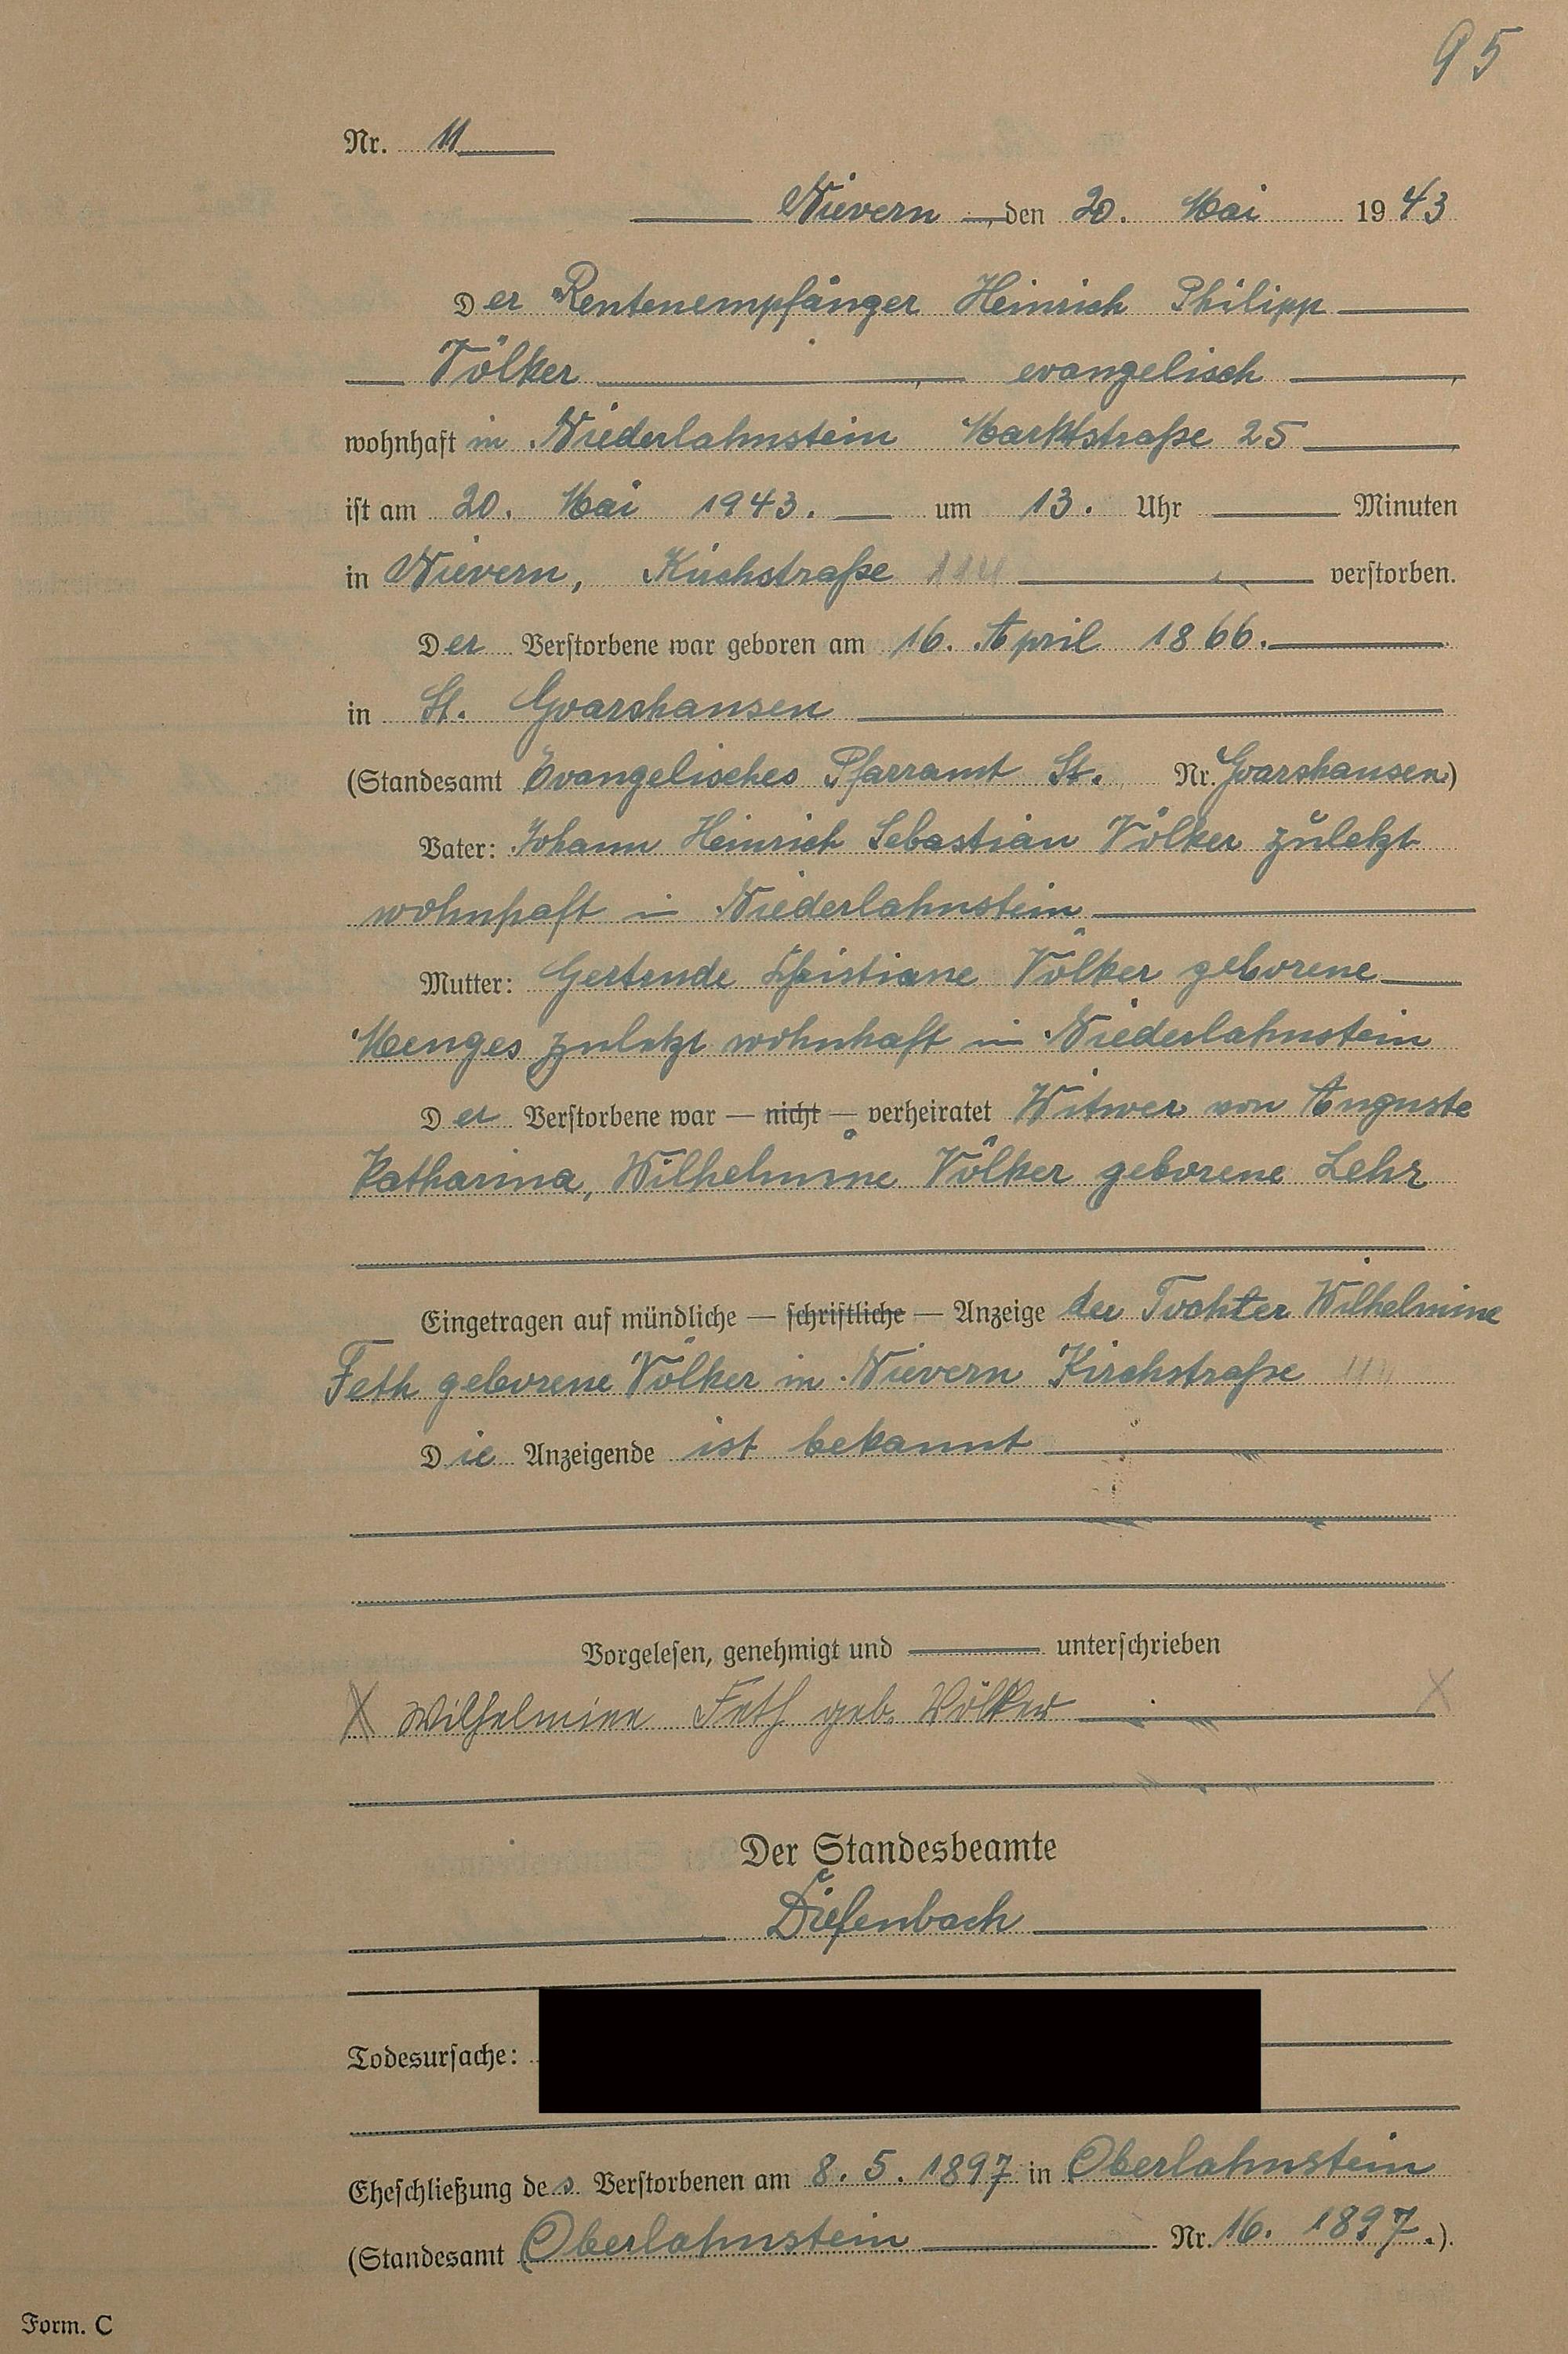 95
Nr. 11
Nievern, den 20. Mai 1943
Der Rentenempfänger Heinrich Philipp
Völker, evangelisch,
wohnhaft in Niederlahnstein Marktstraße 25
ist am 20. Mai 1943. um 13. Uhr Minuten
in Nievern, Kirchstraße verstorben.
Der Verstorbene war geboren am 16. April 1866.
in St. Goarshausen
(Standesamt Evangelisches Pfarramt St. Nr. Goarshausen)
Vater: Johann Heinrich Sebastian Völker zuletzt
wohnhaft in Niederlahnstein
Mutter: Gertrude Christiane Völker geborene
Menges zuletzt wohnhaft in Niederlahnstein
Der Verstorbene war — nicht — verheiratet Witwer von Auguste
Katharina, Wilhelmine Völker geborene Lehr
Eingetragen auf mündliche — schriftliche — Anzeige der Tochter Wilhelmine
Feth geborene Völker in Nievern Kirchstraße
Die Anzeigende ist bekannt
Vorgelesen, genehmigt und unterschrieben
X Wilhelmine Feth geb. Völker X
Der Standesbeamte
Diefenbach
Todesursache:
Eheschließung des Verstorbenen am 8. 5. 1897 in Oberlahnstein
(Standesamt Oberlahnstein Nr. 16. 1897.).
Form. C